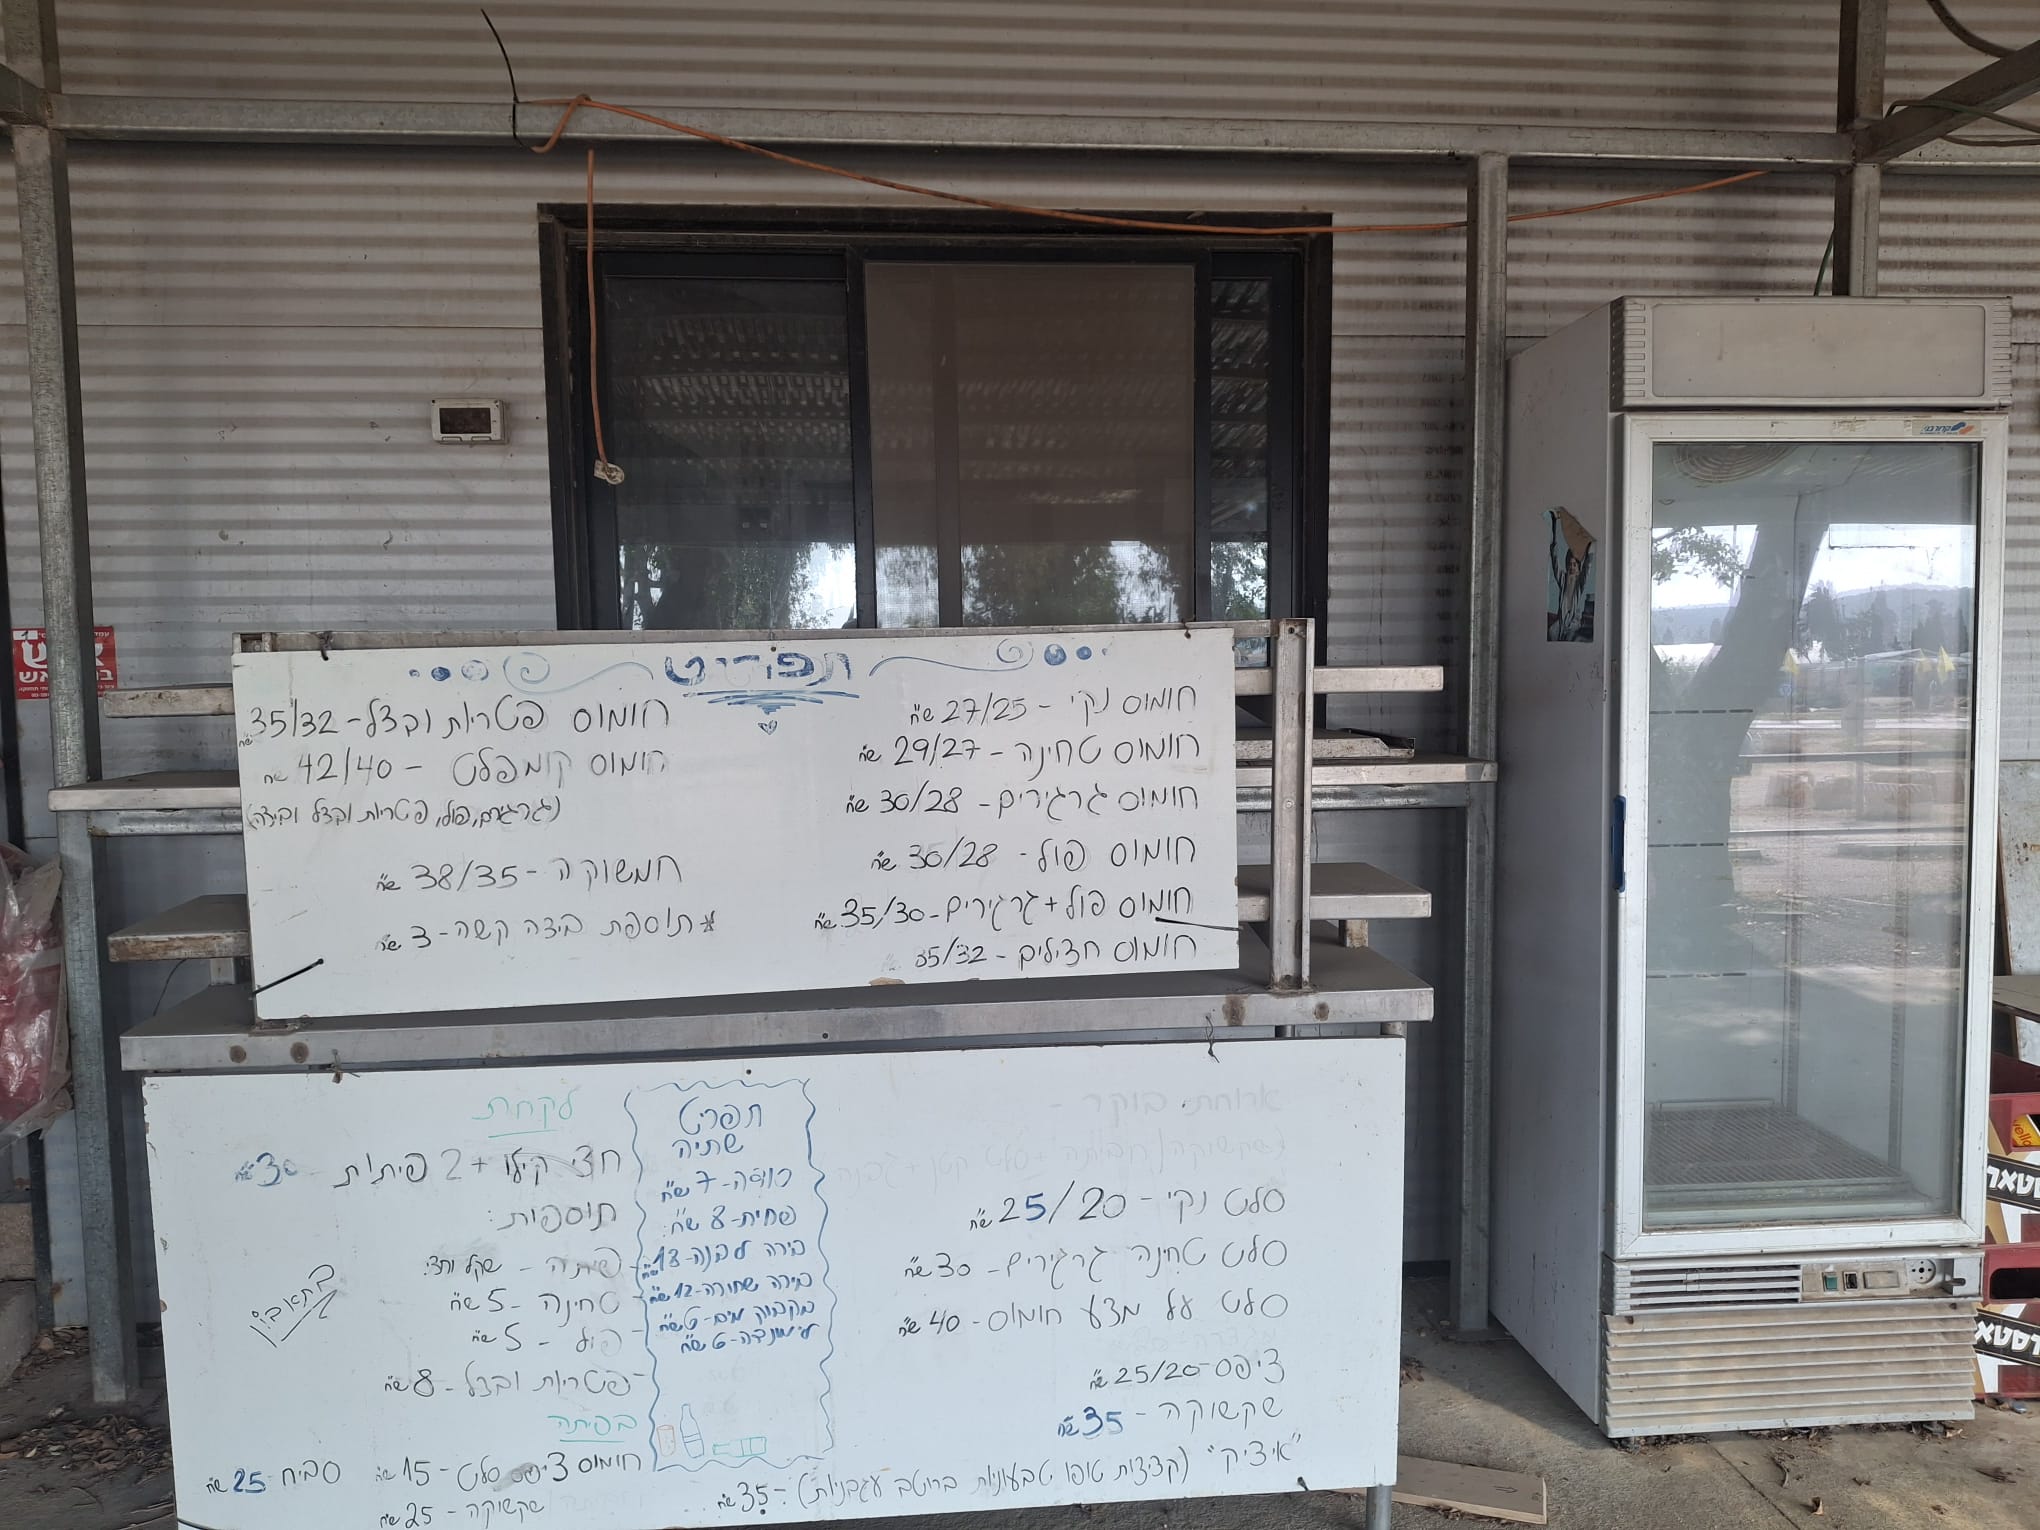 תפריט
חומוס נקי - 27/25 ש"ח
חומוס טחינה - 29/27 ש"ח
חומוס גרגירים - 30/28 ש"ח
חומוס פול - 30/28 ש"ח
חומוס פול + גרגירים - 35/30 ש"ח
חומוס חצילים - 35/32
חומוס פטריות ובצל - 35/32 ש"ח
חומוס קומפלט - 42/40 ש"ח
(גרגרים, פול, פטריות ובצל וביצה)
חמשוקה - 38/35 ש"ח
* תוספת ביצה קשה - 3 ש"ח
ארוחת בוקר -
(שקשוקה/חביתה + סלט קטן + גבנה
סלט נקי - 25/20 ש"ח
סלט טחינה גרגירים - 30 ש"ח
סלט על מצע חומוס - 40 ש"ח
ציפס - 25/20 ש"ח
שקשוקה - 35 ש"ח
"איציק" (קציצות טופו טבעוניות ברוטב עגבניות) - 35 ש"ח
תפריט
שתיה
קולה - 7 ש"ח
פחית - 8 ש"ח
בירה לבנה - 13 ש"ח
בירה שחורה - 12 ש"ח
בקבוק מים - 6 ש"ח
לימונדה - 6 ש"ח
לקחת
חצי קילו + 2 פיתות - 30 ש"ח
תוספות:
פיתה - שקל וחצי
טחינה - 5 ש"ח
פול - 5 ש"ח
פטריות ובצל - 8 ש"ח
בפיתה
חומוס ציפס סלט - 15 ש"ח
סביח - 25 ש"ח
שקשוקה - 25 ש"ח
בתאבון!